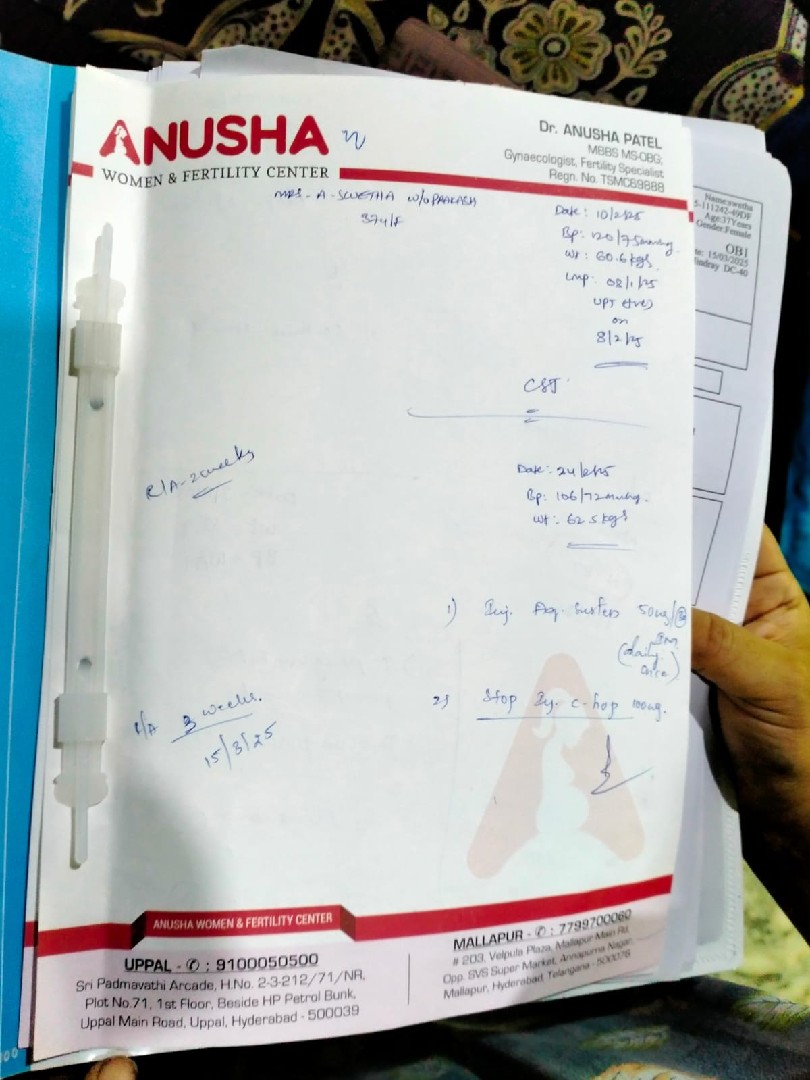 ANUSHA
WOMEN & FERTILITY CENTER
Dr. ANUSHA PATEL
MBBS MS-OBG,
Gynaecologist, Fertility Specialist
Regn. No. TSMC69888
MRS - A - SWETHA W/O PRAKASH
37y/F
Date : 10/2/25
Bp: 120/75mmHg.
Wt : 60.6kgs.
Lmp: 08/1/25
UPT (+ve)
on
8/2/25
CST
R/A - 2 weeks
Date: 24/2/25
Bp: 106/72mmHg.
Wt: 62.5kgs
1) Inj. Aq. 50mg
(daily
once)
2) Stop Inj. C-hop 100mg.
R/A 3 weeks.
15/3/25
Name:swetha
Age:37Years
Gender:Female
OB1
15/03/2025
Mindray DC-40
ANUSHA WOMEN & FERTILITY CENTER
UPPAL - ✆ : 9100050500
Sri Padmavathi Arcade, H.No. 2-3-212/71/NR,
Plot No.71, 1st Floor, Beside HP Petrol Bunk,
Uppal Main Road, Uppal, Hyderabad - 500039
MALLAPUR - ✆ : 7799700060
# 203, Velpula Plaza, Mallapur Main Rd,
Opp. SVS Super Market, Annapurna Nagar,
Mallapur, Hyderabad, Telangana - 500076